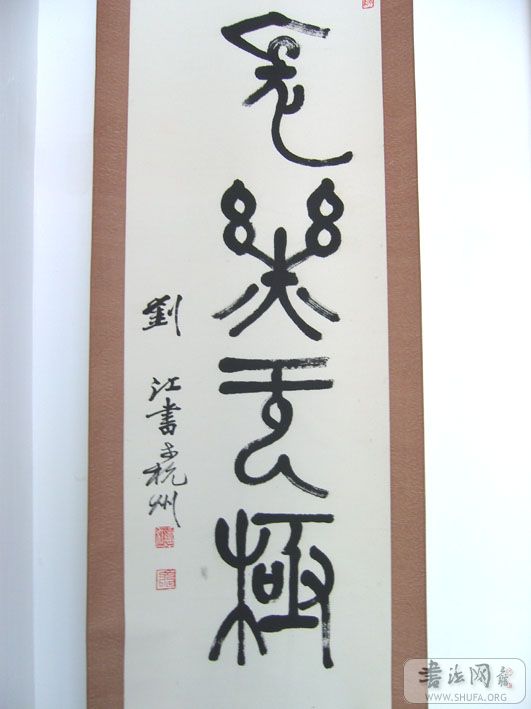 長樂无極
劉江書于杭州
書法网
WWW.SHUFA.ORG